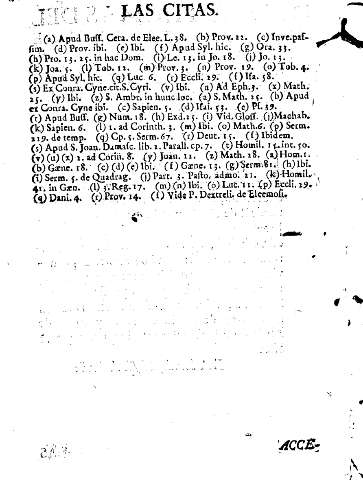 LAS CITAS.
(a) Apud Buss. Cera. de Elee. L. 38. (b) Prov. 22. (c) Inve.passim.
(d) Prov. ibi. (e) Ibi. (f) Apud Syl. hic. (g) Ora. 33.
(h) Pro. 13. 25. in hac Dom. (i) Le. 13. in Jo. 18. (j) Jo. 13.
(k) Joa. 5. (l) Tob. 12. (m) Prov. 3. (n) Prov. 19. (o) Tob. 4.
(p) Apud Syl. hic. (q) Luc. 6. (r) Eccli. 29. (ſ) Isa. 58.
(s) Ex Conra. Cyne.cit.S.Cyri. (v) Ibi. (u) Ad Eph.5. (x) Math.
25. (y) Ibi. (z) S. Ambr. in hunc loc. (a) S. Math. 25. (b) Apud
et Conra. Cyne ibi. (c) Sapien. 5. (d) Isai. 53. (e) Ps. 29.
(f) Apud Buss. (g) Num. 18. (h) Exd. 15. (i) Vid. Gloss. (j) Machab.
(k) Sapien. 6. (l) 1. ad Corinth. 3. (m) Ibi. (o) Math. 6. (p) Serm.
219. de temp. (q) Cp. 5. Serm. 67. (r) Deut. 15. (ſ) Ibidem.
(s) Apud S. Joan. Damasc. lib. 2. Parall. cp. 7. (t) Homil. 15. int. 50.
(v) (u) (x) 2. ad Corin. 8. (y) Juan. 11. (z) Math. 28. (a) Hom. 1.
(b) Gæne. 18. (c) (d) (e) Ibi. (f) Gæne. 13. (g) Serm. 81. (h) Ibi.
(i) Serm. 5. de Quadrag. (j) Part. 3. Pasto. admo. 21. (k) Homil.
41. in Gæn. (l) 3. Reg. 17. (m) (n) Ibi. (o) Luc. 11. (p) Eccli. 29.
(q) Danl. 4. (r) Prov. 14. (ſ) Vide P. Dextreli. de Eleemosi.
ACCE-